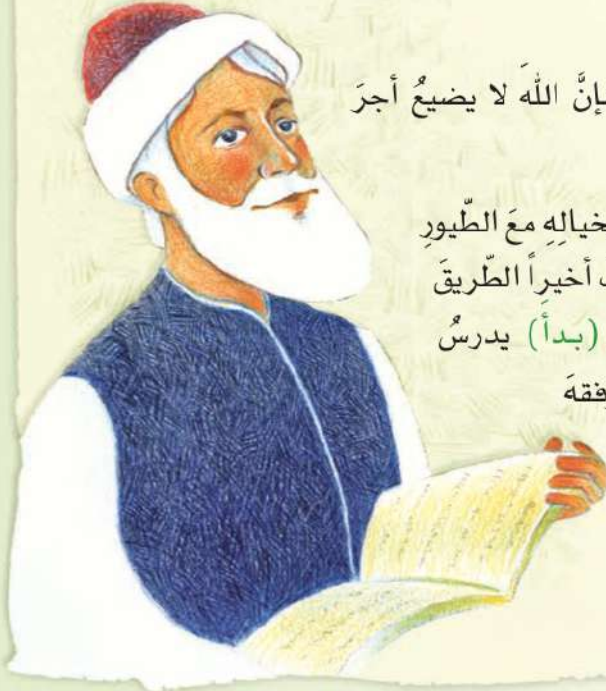 إنَّ اللهَ لا يضيعُ أجرَ
خيالِهِ معَ الطّيورِ
أخيراً الطّريقَ
(بدأ) يدرسُ
فقهَ